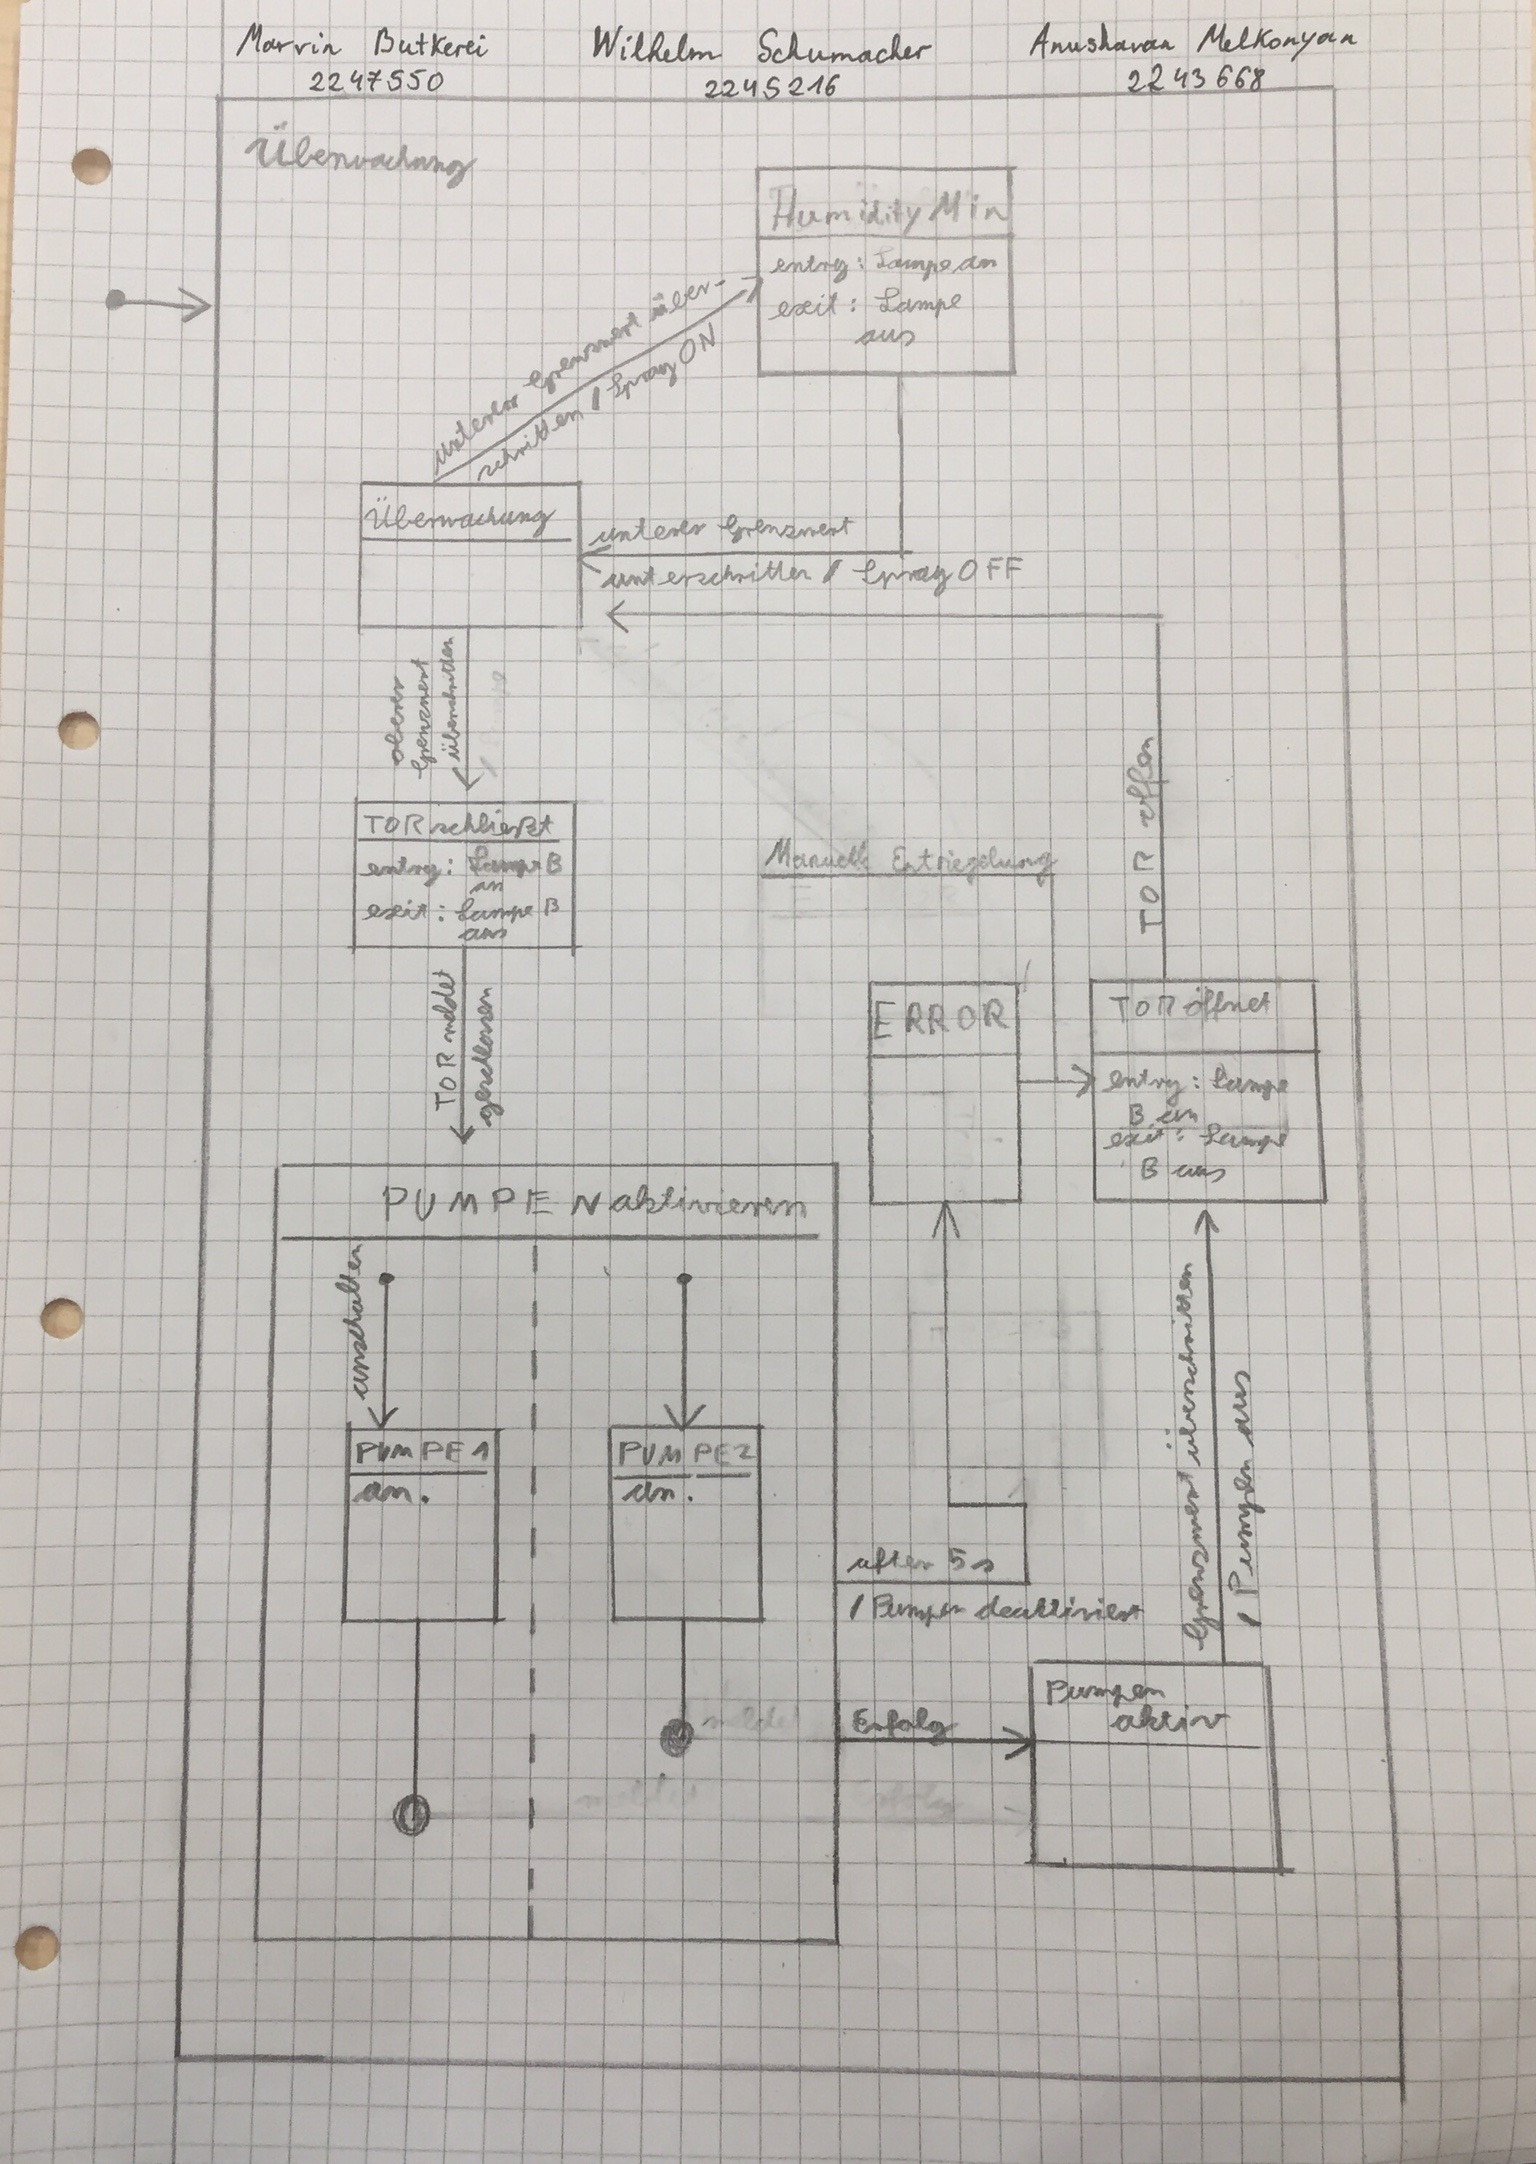 Marvin Butkerei
2247550
Wilhelm Schumacher
2245216
Anushavan Melkonyan
2243668
Überwachung
Humidity Min
entry: Lampe an
exit: Lampe
aus
unterer Grenzwert über-
schritten / Spray ON
Überwachung
unterer Grenzwert
unterschritten / Spray OFF
oberer
Grenzwert
überschritten
TOR schließt
entry: Lampe B
an
exit: Lampe B
aus
Manuelle Entriegelung
TOR offen
TOR meldet
geschlossen
ERROR
TOR öffnet
entry: Lampe
B an
exit: Lampe
B aus
PUMPEN aktivieren
anschalten
PUMPE 1
an.
PUMPE 2
an.
after 5 s
/ Pumpen deaktiviert
Grenzwert überschritten
/ Pumpen aus
Erfolg
Pumpen
aktiv